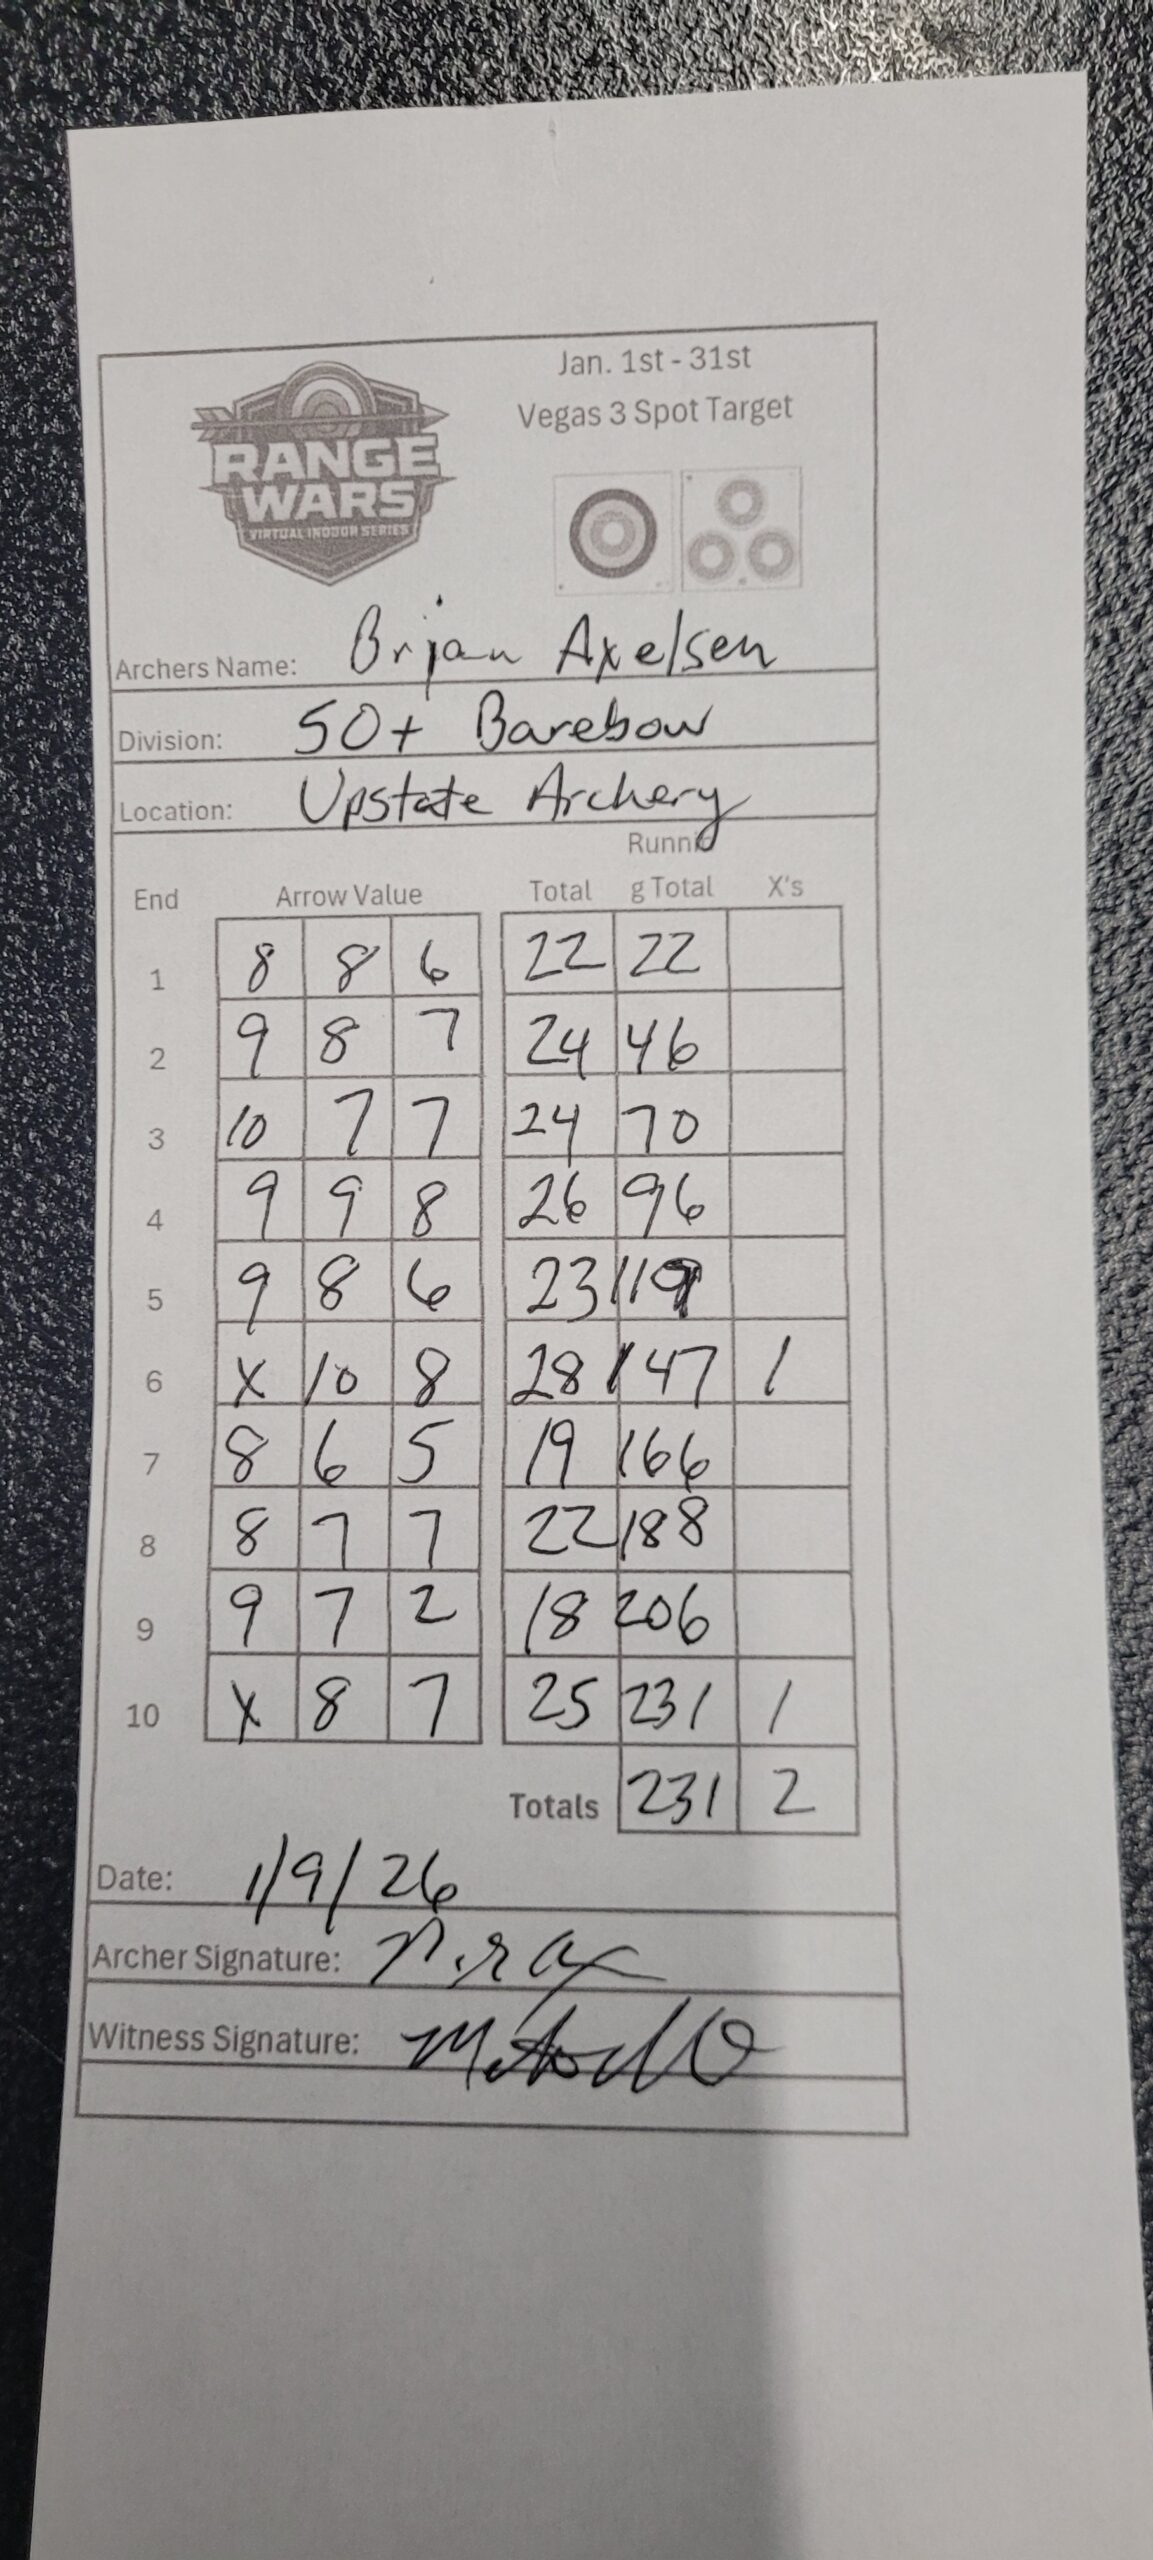 RANGE
WARS
VIRTUAL INDOOR SERIES
Jan. 1st - 31st
Vegas 3 Spot Target
Archers Name: Brian Axelsen
Division: 50+ Barebow
Location: Upstate Archery
End Arrow Value Total Running Total X's
1 8 8 6 22 22
2 9 8 7 24 46
3 10 7 7 24 70
4 9 9 8 26 96
5 9 8 6 23 119
6 X 10 8 28 147 1
7 8 6 5 19 166
8 8 7 7 22 188
9 9 7 2 18 206
10 X 8 7 25 231 1
Totals 231 2
Date: 1/9/26
Archer Signature:
Witness Signature: